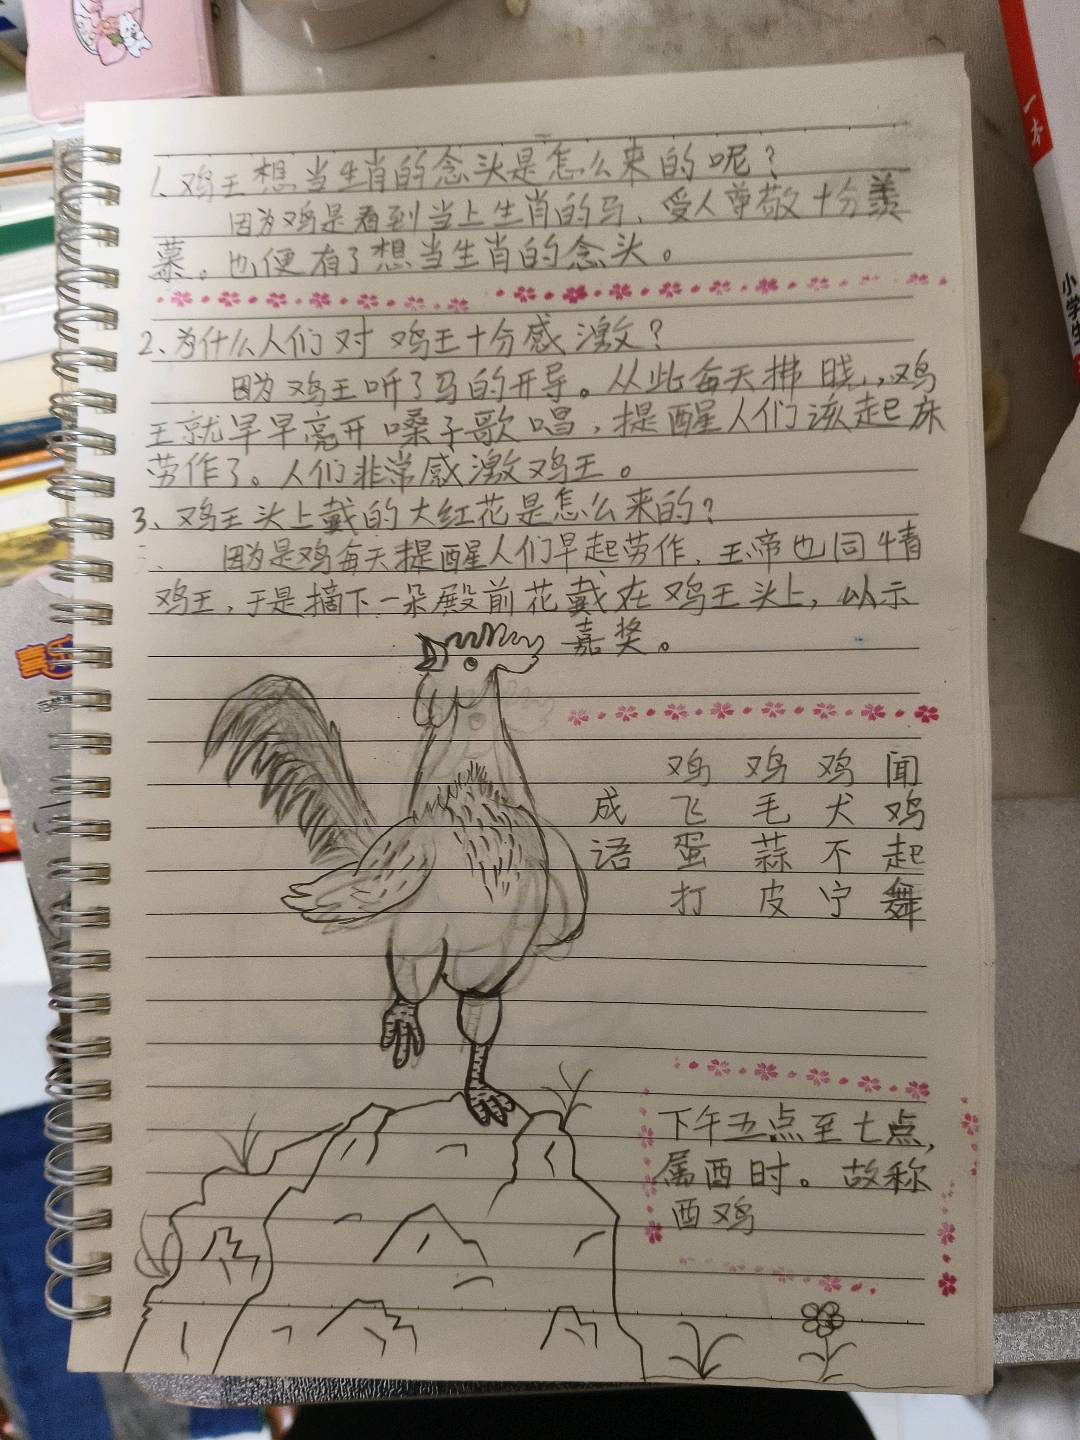 1、鸡王想当生肖的念头是怎么来的呢？
因为鸡是看到当上生肖的马、受人尊敬十分羡
慕。也便有了想当生肖的念头。
2、为什么人们对鸡王十分感激？
因为鸡王听了马的开导。从此每天拂晓，鸡
王就早早亮开嗓子歌唱，提醒人们该起床
劳作了。人们非常感激鸡王。
3、鸡王头上戴的大红花是怎么来的？
因为是鸡每天提醒人们早起劳作，玉帝也同情
鸡王，于是摘下一朵殿前花戴在鸡王头上，以示
嘉奖。
成语
鸡飞蛋打
鸡毛蒜皮
鸡犬不宁
闻鸡起舞
下午五点至七点，
属酉时。故称
酉鸡
一本
小学生